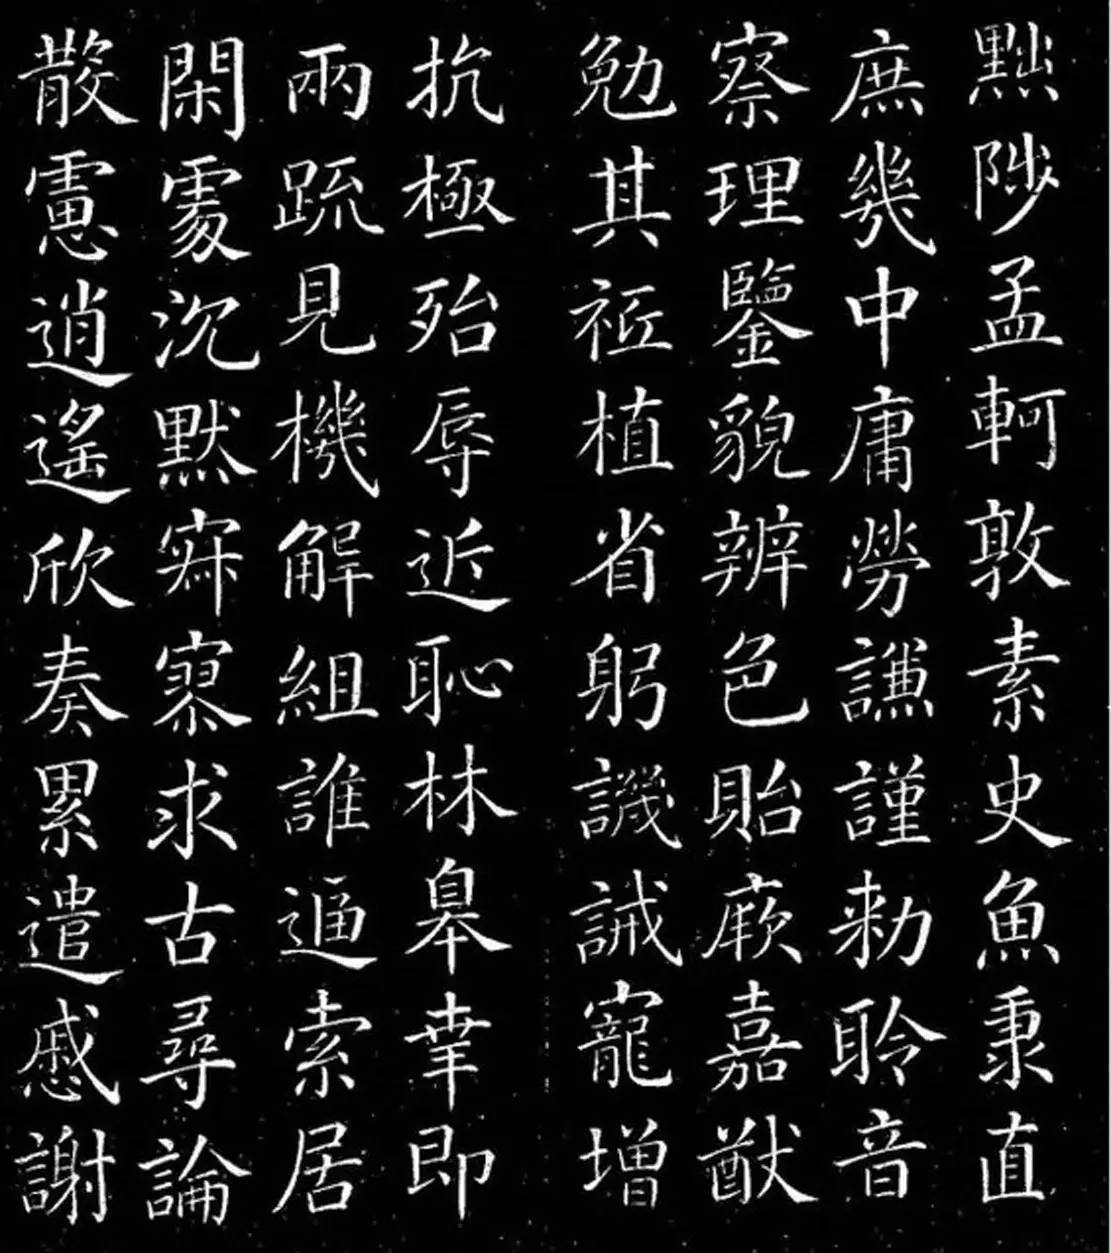 黜陟孟軻敦素史魚秉直
庶幾中庸勞謙謹勑聆音
察理鑒貌辨色貽厥嘉猷
勉其祗植省躬譏誡寵增
抗極殆辱近恥林皋幸即
兩疏見機解組誰逼索居
閑處沉默寂寥求古尋論
散慮逍遙欣奏累遣慼謝